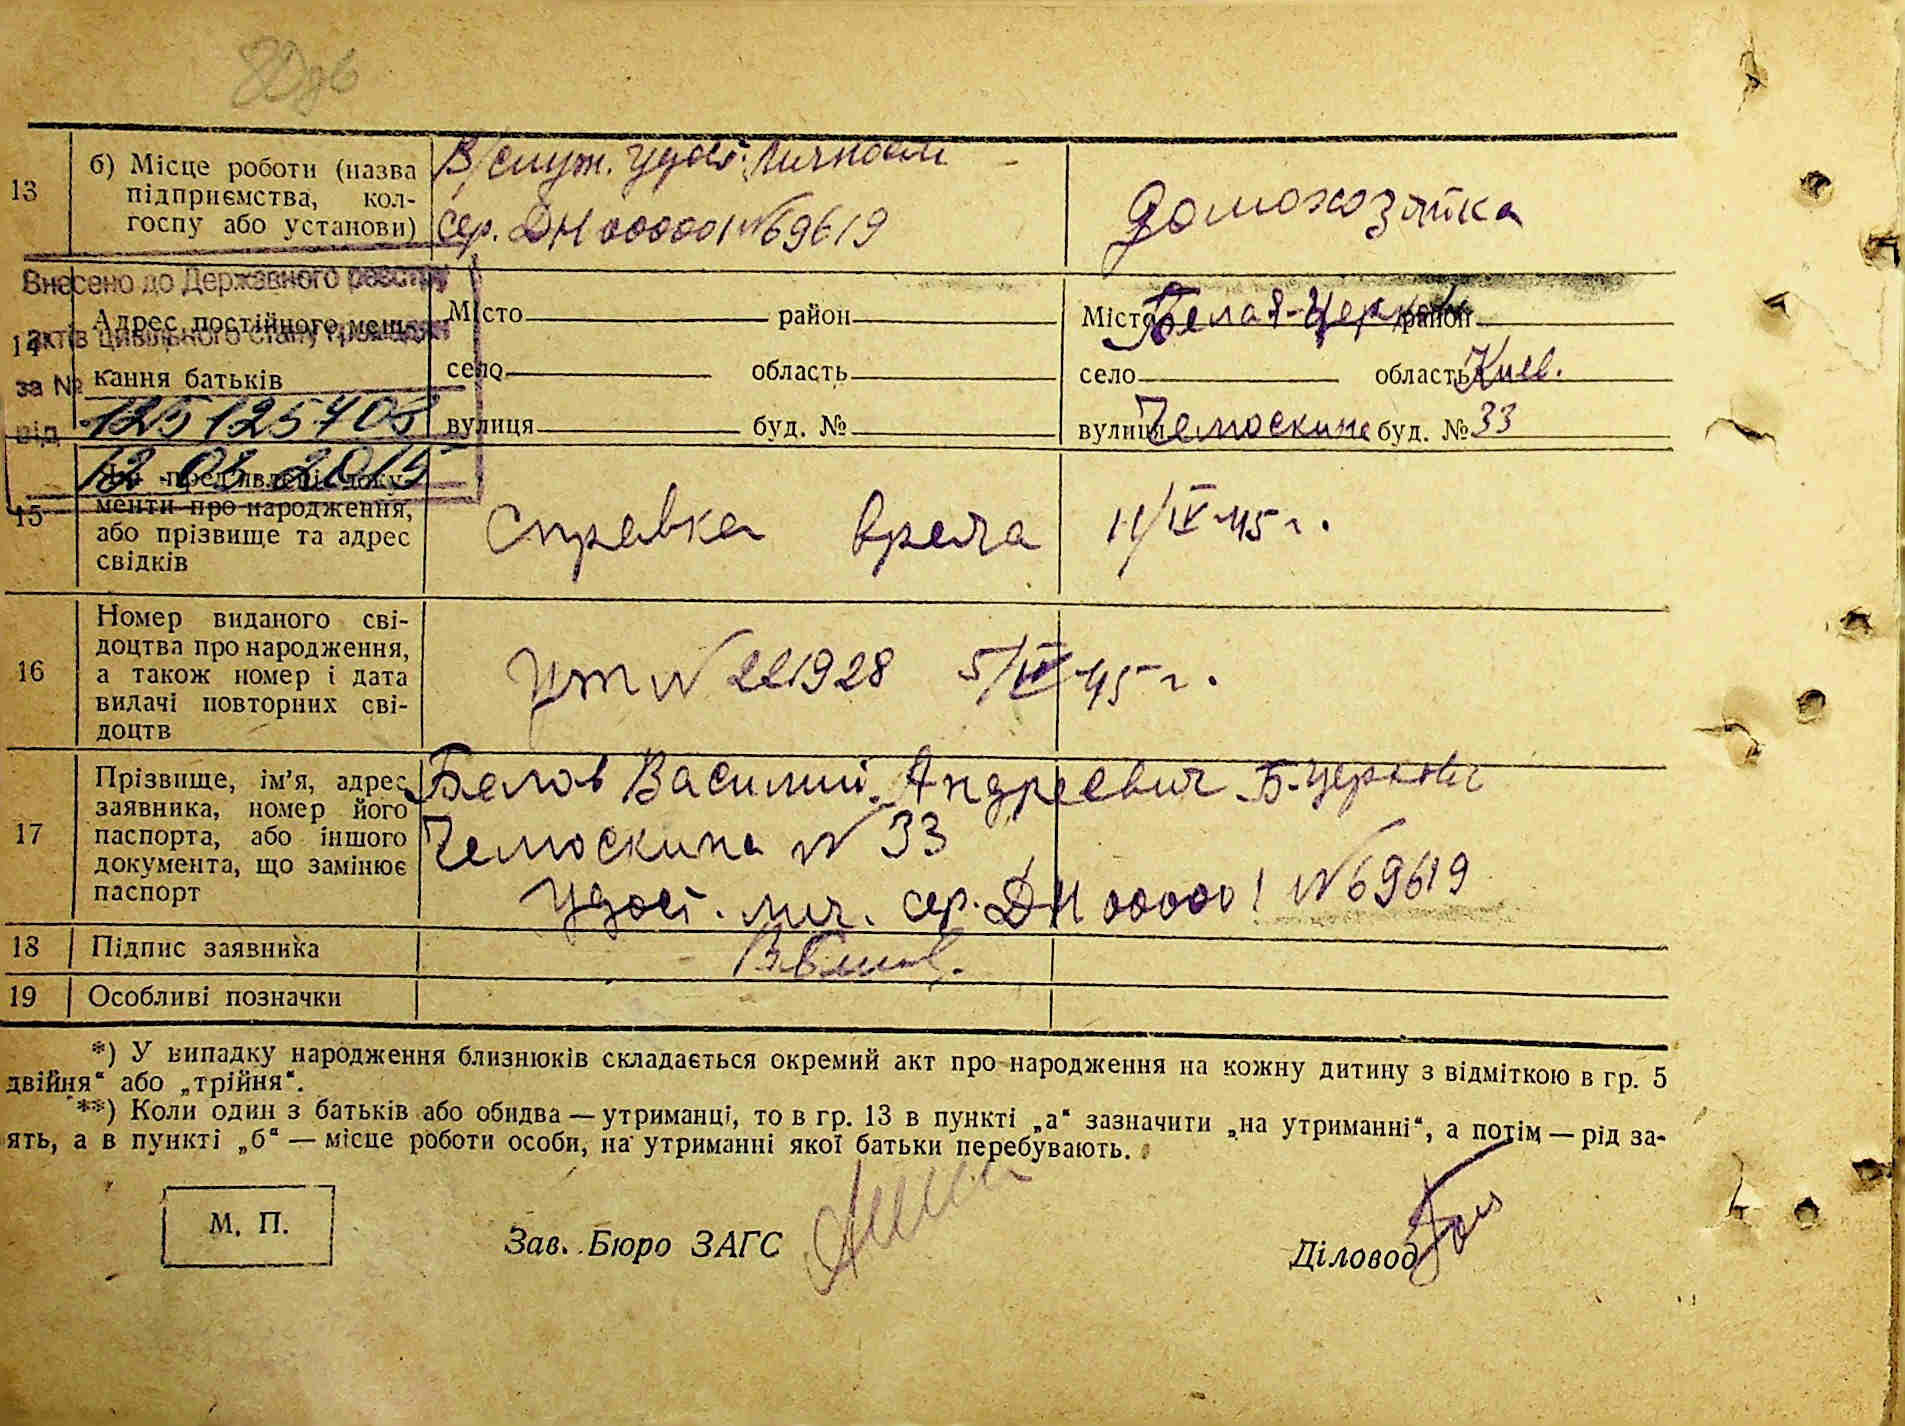 13
б) Місце роботи (назва
підприємства, кол-
госпу або установи)
В/служ. удост. личности
сер. ДН 000001 № 69619
домохозяйка
Внесено до Державного реєстру
актів цивільного стану громадян
за № 125125405
від 12 08 2015
14
Адрес постійного меш-
кання батьків
Місто район
село область
вулиця буд. №
Місто Белая-Церковь район
село область Киев.
вулиця буд. № 33
15
Які пред'явлені доку-
менти про народження,
або прізвище та адрес
свідків
Справка врача 11/IV 45 г.
16
Номер виданого сві-
доцтва про народження,
а також номер і дата
видачі повторних сві-
доцтв
№ 221928 5/IV 45 г.
17
Прізвище, ім'я, адрес
заявника, номер його
паспорта, або іншого
документа, що замінює
паспорт
Белов Василий Андреевич Б-Церковь
№ 33
удост. лич. сер. ДН 000001 № 69619
18
Підпис заявника
19
Особливі позначки
*) У випадку народження близнюків складається окремий акт про народження на кожну дитину з відміткою в гр. 5
двійня“ або „трійня“.
**) Коли один з батьків або обидва — утриманці, то в гр. 13 в пункті „а“ зазначити „на утриманні“, а потім — рід за-
ять, а в пункті „б“ — місце роботи особи, на утриманні якої батьки перебувають.
М. П.
Зав. Бюро ЗАГС
Діловод